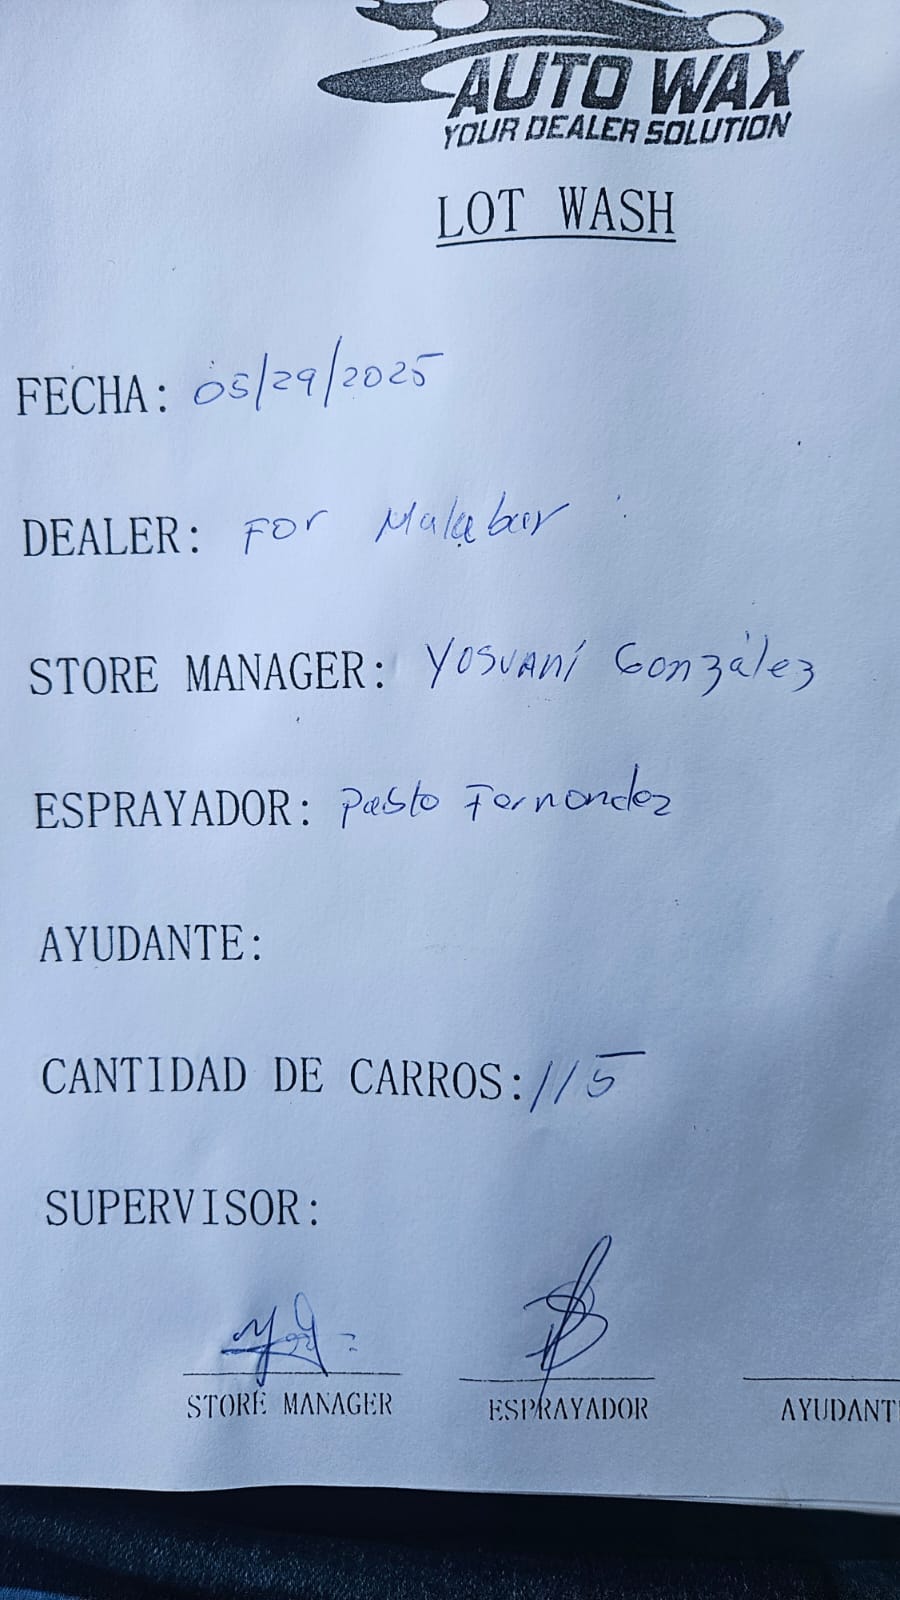 AUTO WAX
YOUR DEALER SOLUTION
LOT WASH
FECHA: 05/29/2025
DEALER: For Malabar
STORE MANAGER: Yosvaní González
ESPRAYADOR: Pasto Fernondez
AYUDANTE:
CANTIDAD DE CARROS: 115
SUPERVISOR:
STORE MANAGER ESPRAYADOR AYUDANT